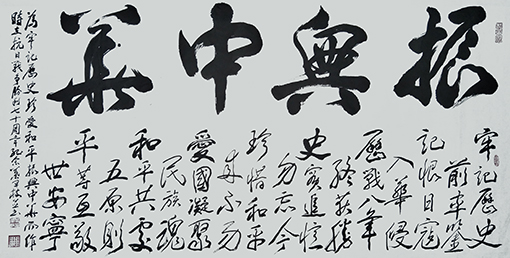 振興中華
牢記歷史
前車鑒
記恨日寇
入華侵
歷戰八年
終獲勝
史實追憶
勿忘今
珍惜和平
來不易
愛國凝聚
民族魂
和平共處
五原則
平等互敬
世安寧
為牢記歷史珍愛和平振興中華而作
時在抗日戰爭勝利七十周年紀念